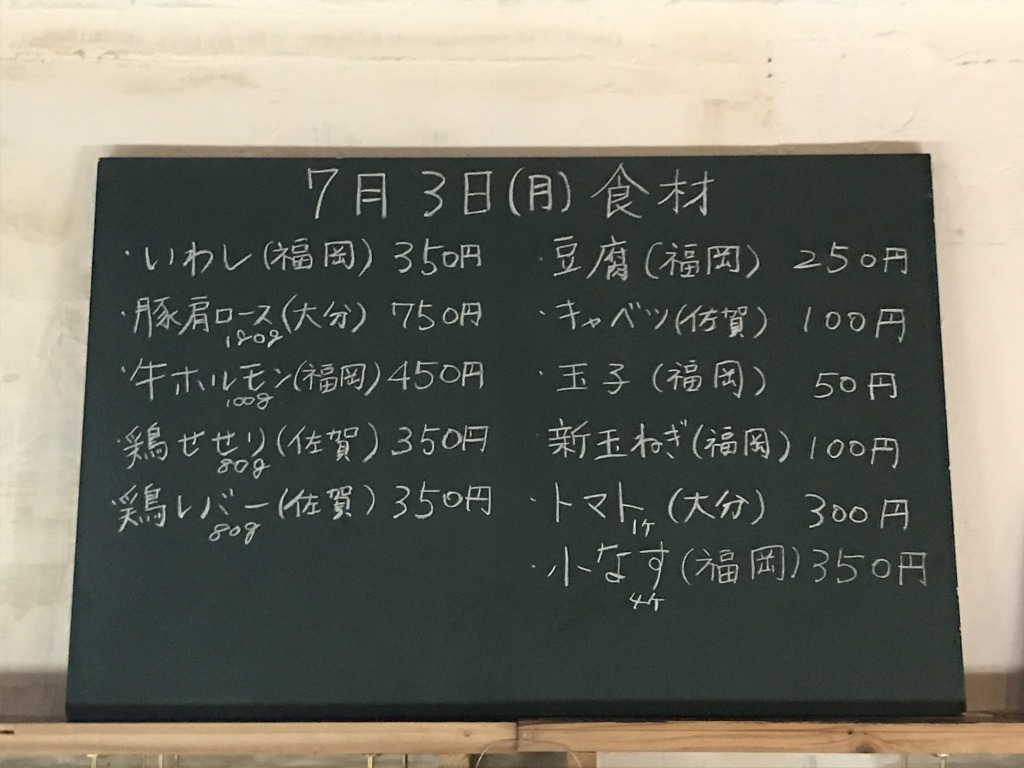 7月3日(月)食材
・いわし(福岡)350円
・豚肩ロース(大分)750円
180g
・牛ホルモン(福岡)450円
100g
・鶏せせり(佐賀)350円
80g
・鶏レバー(佐賀)350円
80g
・豆腐(福岡)250円
・キャベツ(佐賀)100円
・玉子(福岡)50円
・新玉ねぎ(福岡)100円
・トマト(大分)300円
1ヶ
・小なす(福岡)350円
4ヶ